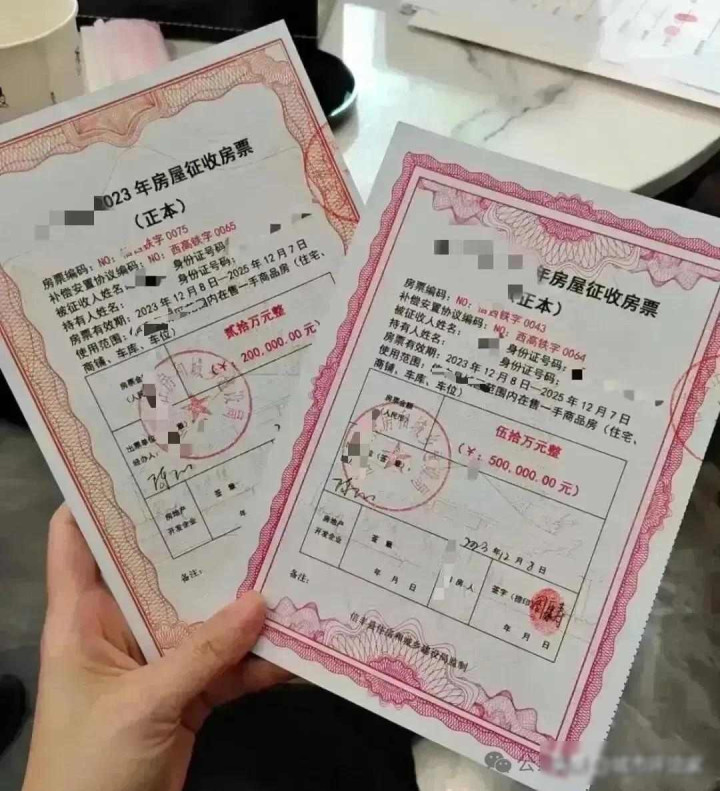 023年房屋征收房票
（正本）
房票编码：NO：信西铁字0075
补偿安置协议编码：NO：西高铁字0065
被征收人姓名：
身份证号码：
持有人姓名：
身份证号码：
房票有效期：2023年12月8日—2025年12月7日
使用范围：
内在售一手商品房（住宅、
商铺、车库、车位）
房票金
（人民
贰拾万元整
（￥：200,000.00元）
出票单位
经办人：
房地产
开发企业
签章：
年
备注：
年房屋征收房票
（正本）
房票编码：NO：信西铁字0043
补偿安置协议编码：NO：西高铁字0064
被征收人姓名：
身份证号码：
持有人姓名：
身份证号码：
房票有效期：2023年12月8日—2025年12月7日
使用范围：
范围内在售一手商品房（住宅、
商铺、车库、车位）
房票金额
（人民币）
伍拾万元整
（￥：500,000.00元）
（签章）
2023年12月8日
房地产
开发企业
签章
年 月 日
房人
签字（捺印）
年 月 日
备注：
信丰县住房和城乡建设局监制
公